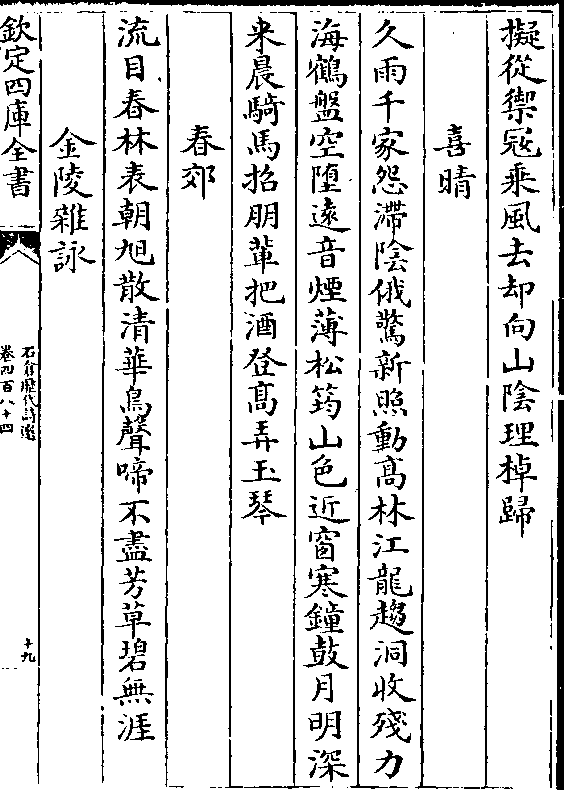 擬從禦冦乘風去却向山陰理棹歸
喜晴
久雨千家怨滯陰俄驚新照動髙林江龍趨洞收殘力
海鶴盤空墮遠音煙薄松筠山色近窗寒鐘鼓月明深
來晨騎馬招朋輩把酒登髙弄玉琴
春郊
流目春林表朝旭散清華鳥聲啼不盡芳草碧無涯
金陵雜詠
欽定四庫全書
石倉歴代詩選
卷四百八十四
十九